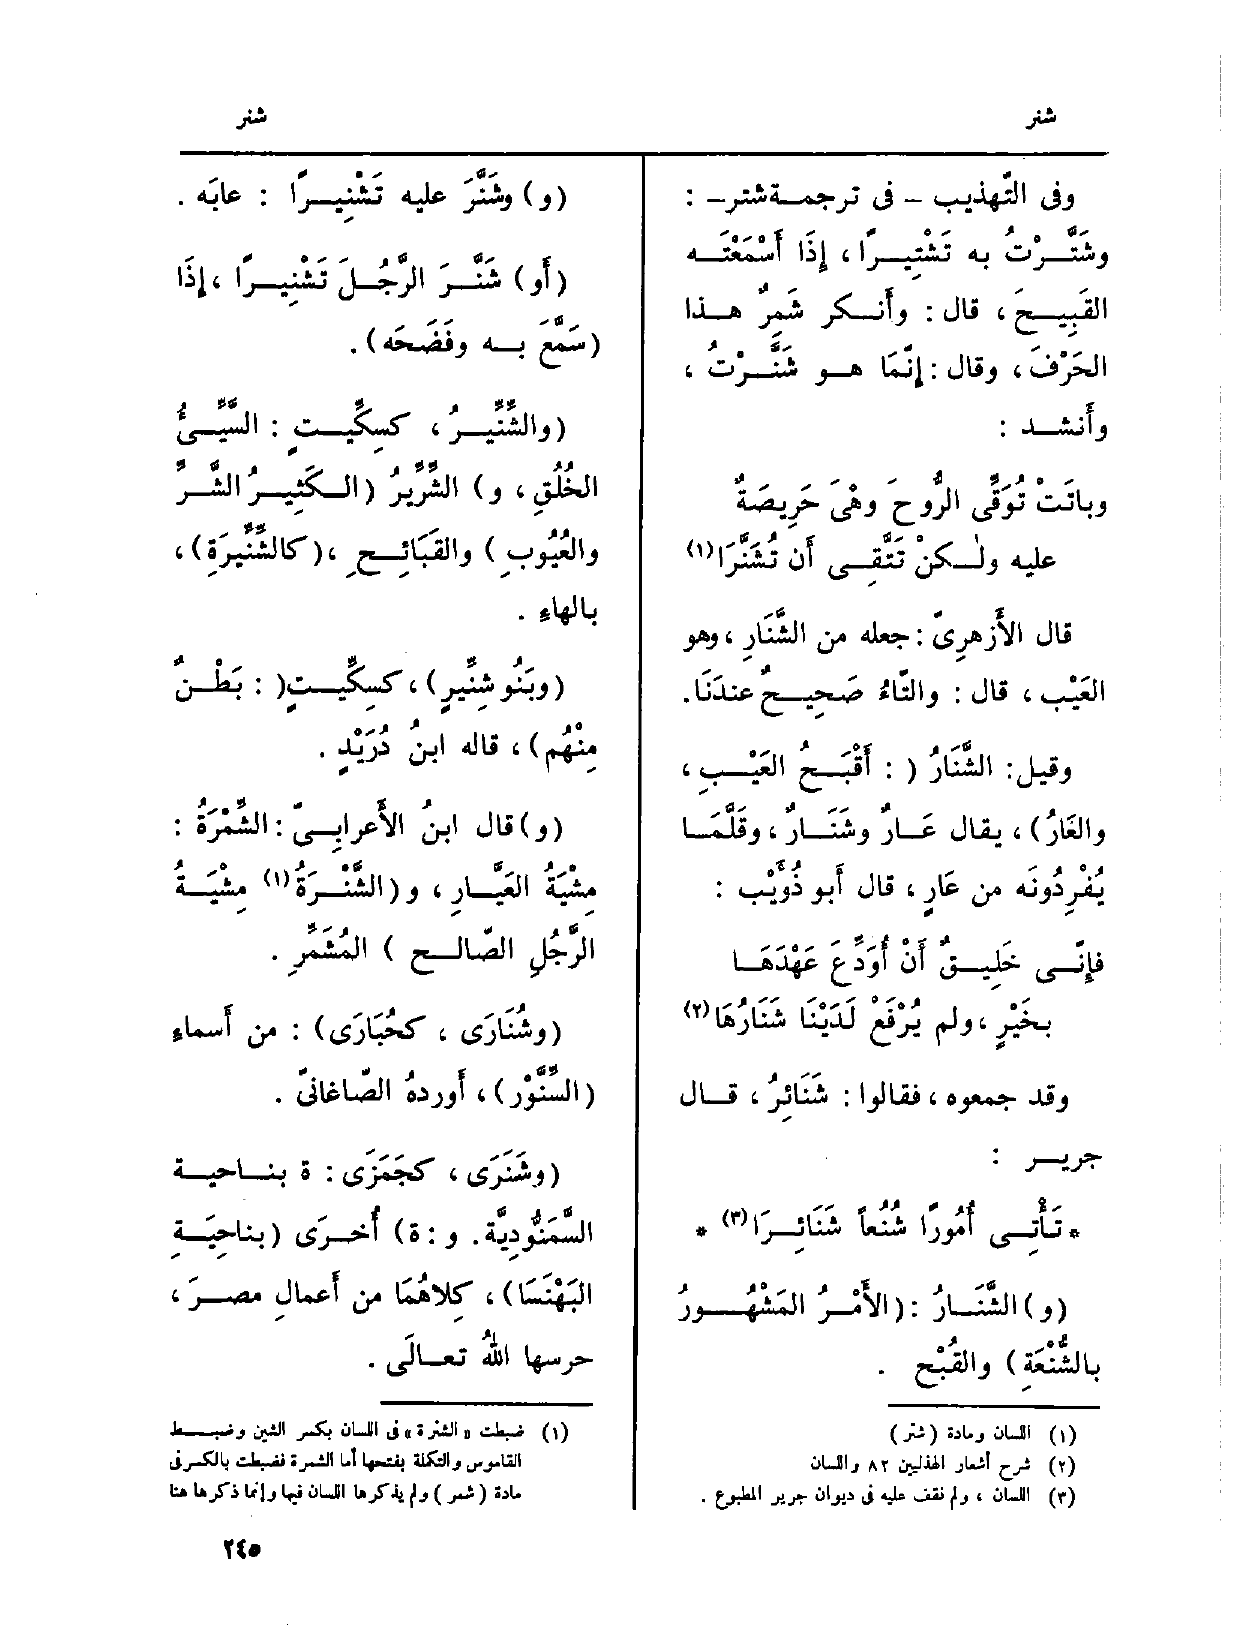 شنر
شنر
وفى التَّهذيب - فى ترجمة شتر - :
وشَتَّرْتُ به تَشْتِيرًا ، إِذَا أَسْمَعْتَه
القَبِيحَ ، قال : وأَنكر شَمِرٌ هذا
الحَرْفَ ، وقال : إِنَّمَا هو شَنَّرْتُ ،
وأَنشد :
وباتَتْ تُوَقَّى الرُّوحَ وهْىَ حَرِيصَةٌ
عليه ولٰكنْ تَتَّقِى أَن تُشَنَّرَا (١)
قال الأَزهرِىّ : جعله من الشَّنَارِ ، وهو
العَيْب ، قال : والتَّاءُ صَحِيحٌ عندَنَا .
وقيل : الشَّنَارُ ( : أَقْبَحُ العَيْبِ ،
والعَارُ) ، يقال عَارٌ وشَنَارٌ ، وقَلَّمَا
يُفْرِدُونَه من عَارٍ ، قال أَبو ذُؤَيْب :
فإِنِّى خَلِيقٌ أَنْ أُوَدِّعَ عَهْدَهَا
بخَيْرٍ ، ولم يُرْفَعْ لَدَيْنَا شَنَارُهَا (٢)
وقد جمعوه ، فقالوا : شَنَائرُ ، قال
جرير :
* تَأْتِى أُمُورًا شُنُعاً شَنَائِرَا (٣) *
(و) الشَّنَارُ : (الأَمْرُ المَشْهُورُ
بالشُّنْعَةِ) والقُبْحِ .
(١) اللسان ومادة (شتر)
(٢) شرح أشعار الهذليين ٨٢ واللسان
(٣) اللسان ، ولم نقف عليه فى ديوان جرير المطبوع .
(و) وشَنَّرَ عليه تَشْنِيرًا : عابَه .
(أَو) شَنَّرَ الرَّجُلَ تَشْنِيرًا ، إِذَا
(سَمَّعَ به وفَضَحَه) .
(والشِّنِّيرُ ، كسِكِّيتٍ : السَّيِّئُ
الخُلُقِ ، و) الشِّرِّيرُ (الكَثِيرُ الشَّرِّ
والعُيُوبِ ) والقَبَائحِ ، (كالشِّنِّيرَةِ) ،
بالهاءِ .
(وبَنُو شِنِّيرٍ) ، كسِكِّيتٍ( : بَطْنٌ
مِنْهُم) ، قاله ابنُ دُرَيْدٍ .
(و) قال ابنُ الأَعرابِىّ : الشِّمْرَةُ :
مِشْيَةُ العَيَّارِ ، و (الشَّنْرَةُ (١) مِشْيَةُ
الرَّجُلِ الصّالح ) المُشَمِّرِ .
(وشُنَارَى ، كحُبَارَى) : من أَسماءِ
(السِّنَّوْرِ) ، أَوردهُ الصّاغانىّ .
(وشَنَرَى ، كجَمَزَى : ة بناحية
السَّمَنُّودِيَّة . و : ة) أُخرَى (بناحِيَةِ
البَهْنَسَا) ، كِلاهُمَا من أَعمالِ مصرَ ،
حرسها اللهُ تعالَى .
(١) ضبطت « الشنرة » فى اللسان بكسر الشين وضبط
القاموس والتكلة بفتحها أما الشمرة فضبطت بالكسر فى
مادة (شمر) ولم يذكرها اللسان فيها وإنما ذكرها هنا
٢٤٥